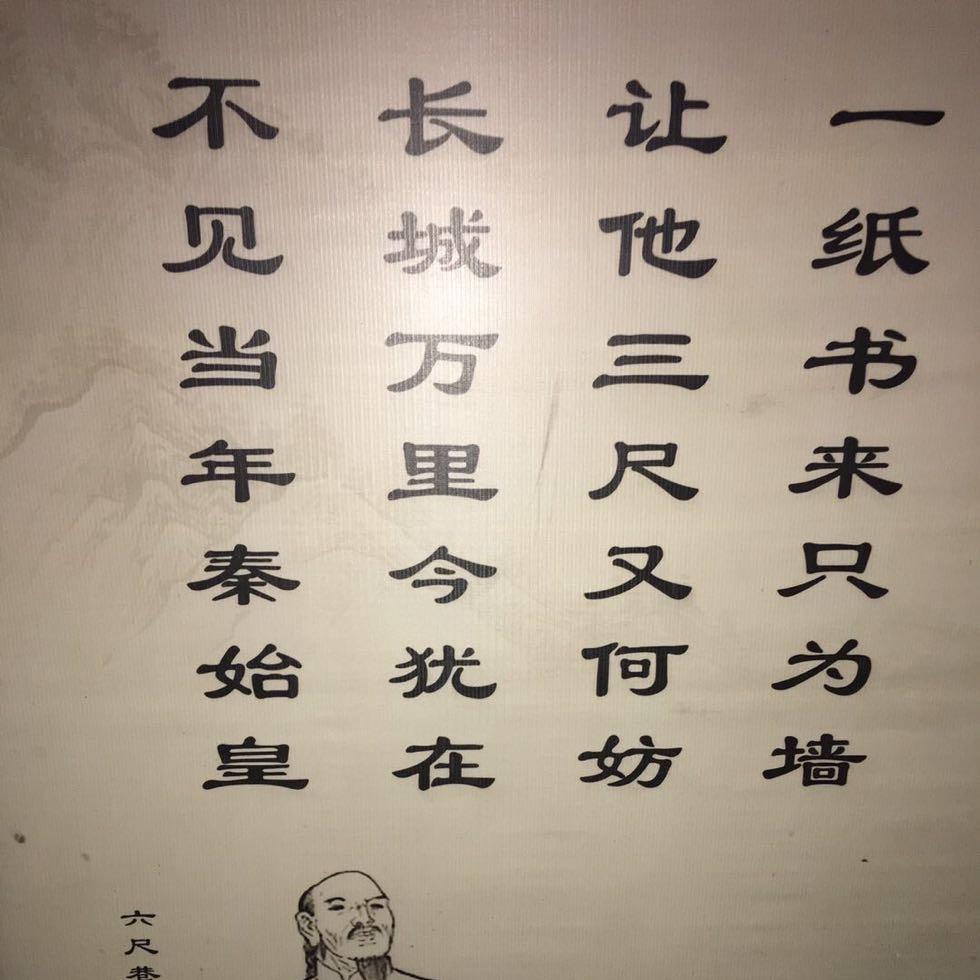 一纸书来只为墙
让他三尺又何妨
长城万里今犹在
不见当年秦始皇
六尺巷